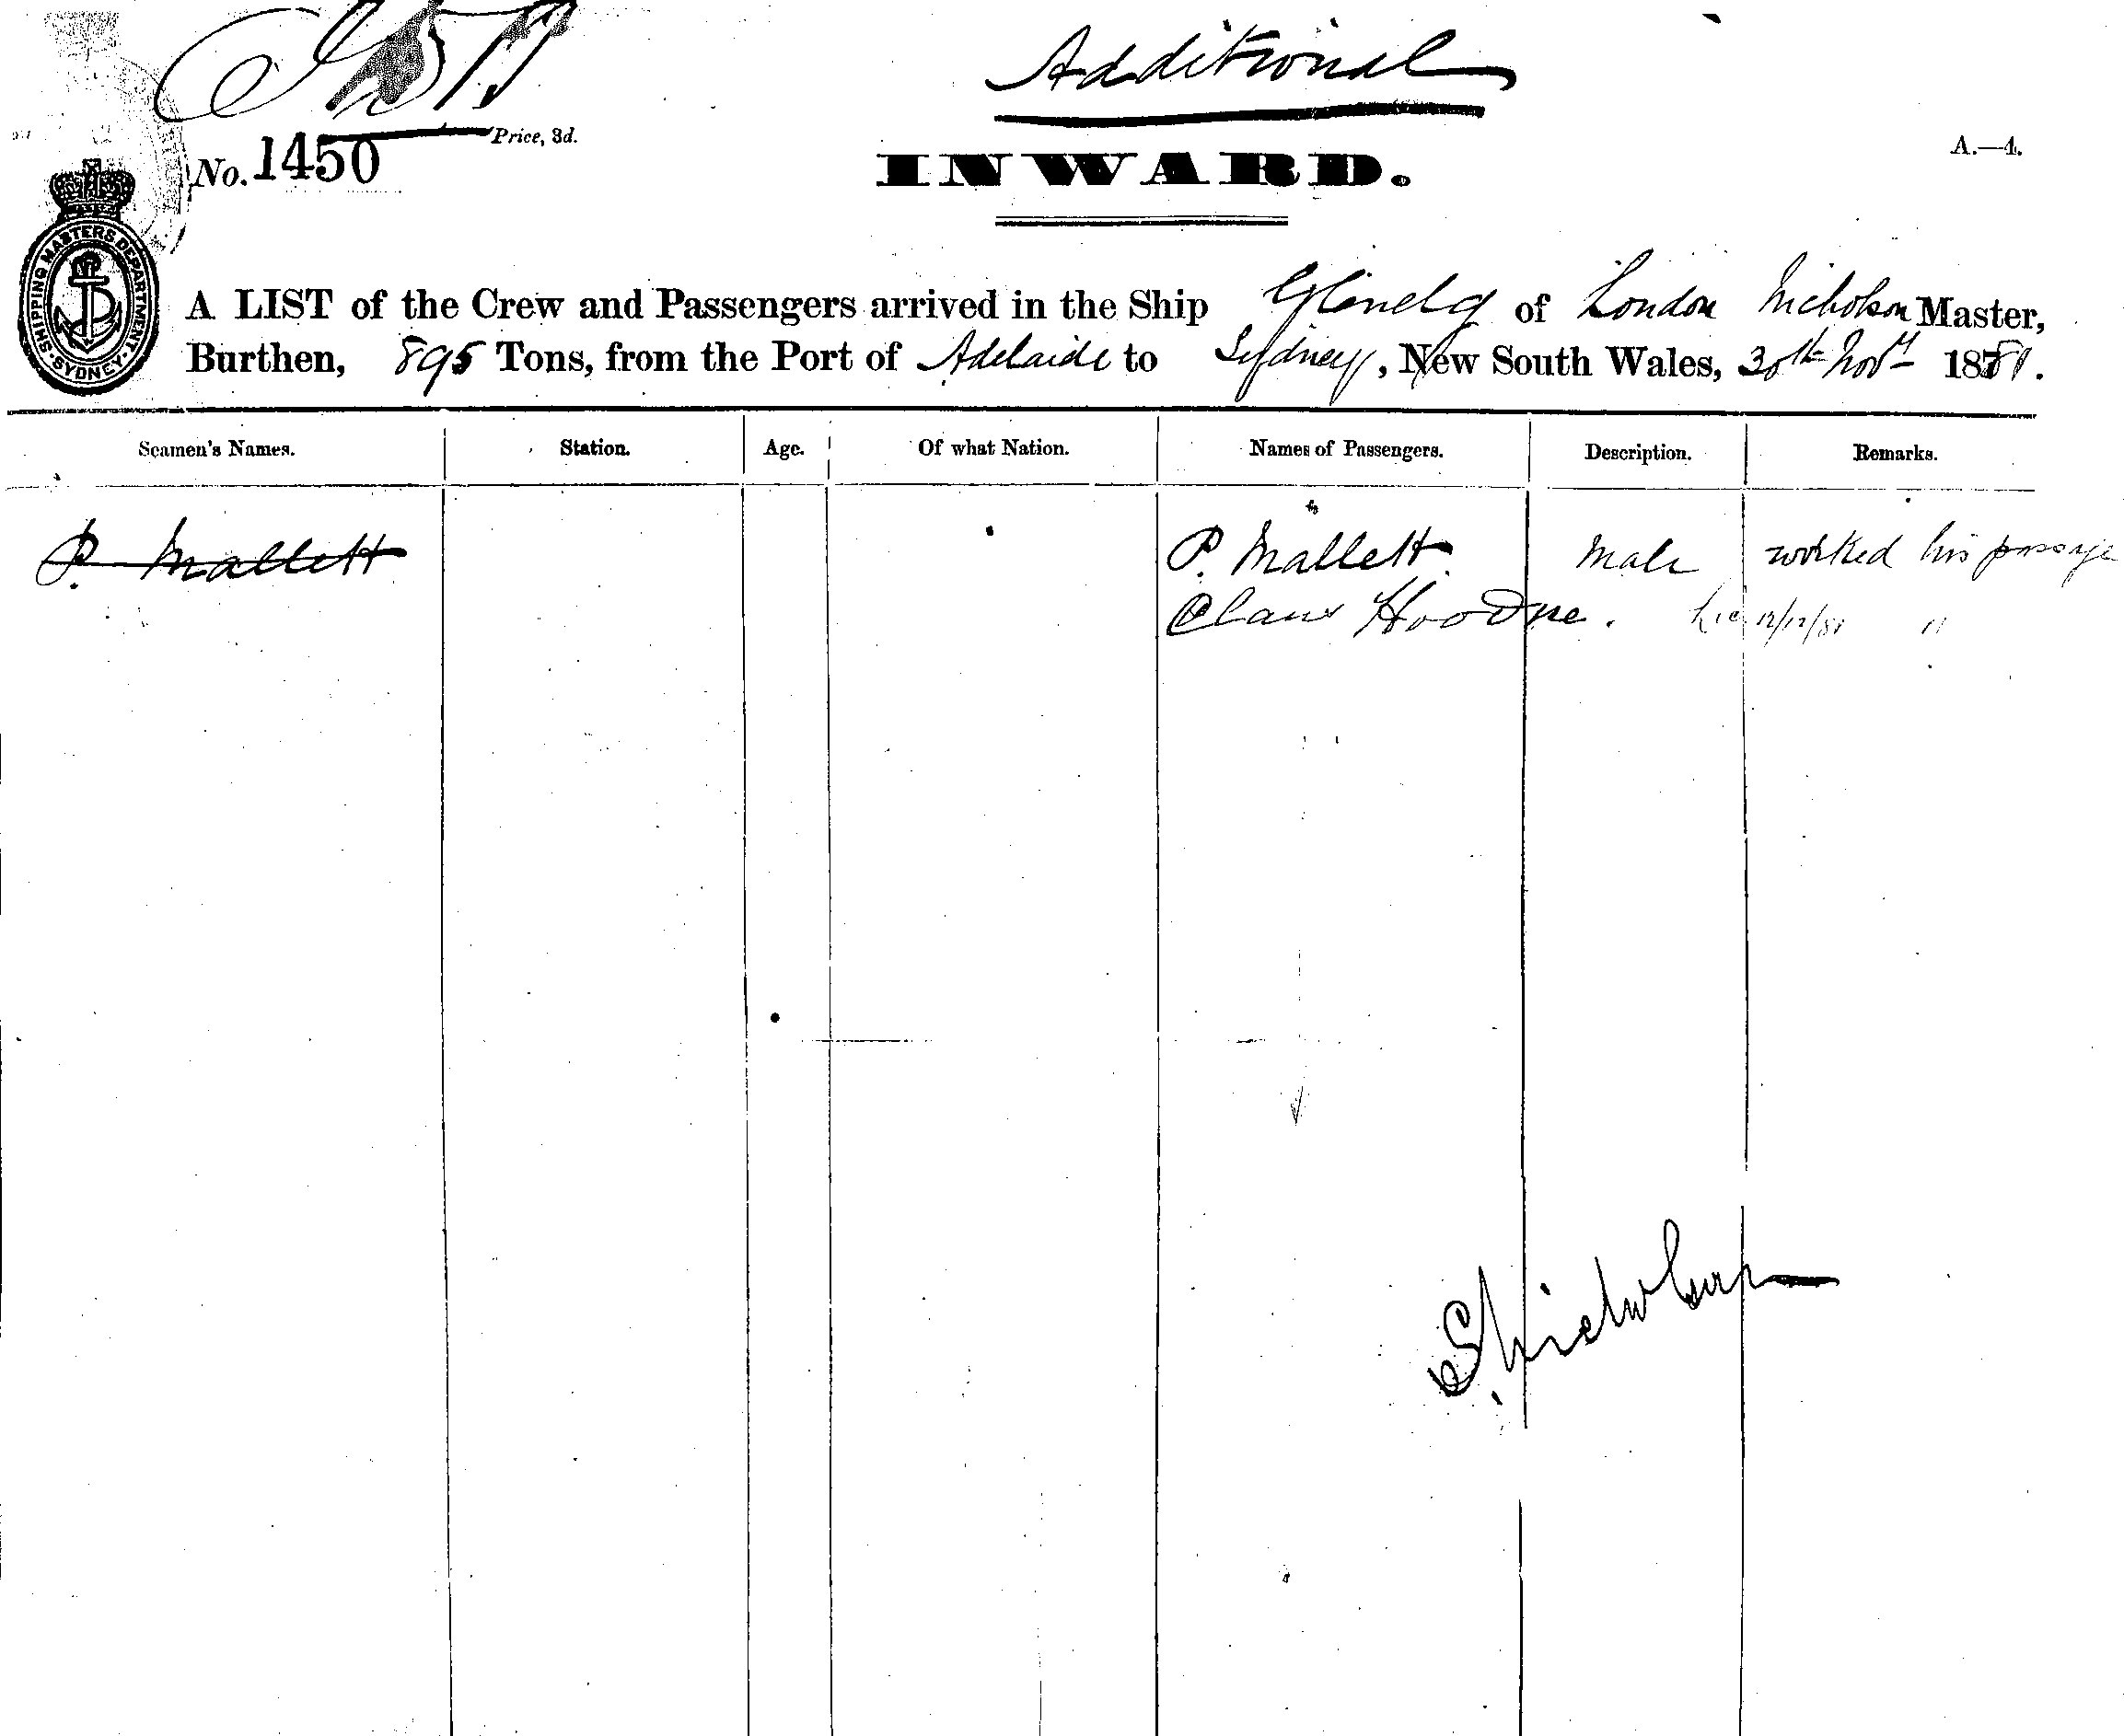 Additional
Price, 3d.
No. 1450
INWARD.
A.—4.
SHIPPING MASTERS DEPARTMENT. SYDNEY.
A LIST of the Crew and Passengers arrived in the Ship Glenelg of London Nicholson Master,
Burthen, 895 Tons, from the Port of Adelaide to Sydney, New South Wales, 30th Novr 1881.
Seamen's Names. Station. Age. Of what Nation. Names of Passengers. Description. Remarks.
P. Mallett P. Mallett Male worked his passage
Claus 12/12/81 "
S. Nicholson